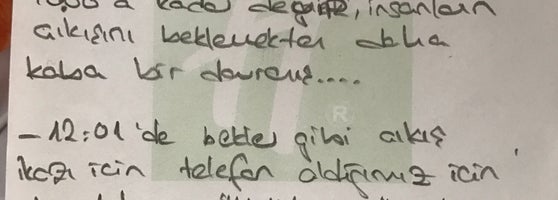 a kadar değil, insanların
çıkışını beklemekten daha
kaba bir davranış....
- 12:01'de bekle gibi çıkış
ikazı için telefon aldığımız için
®